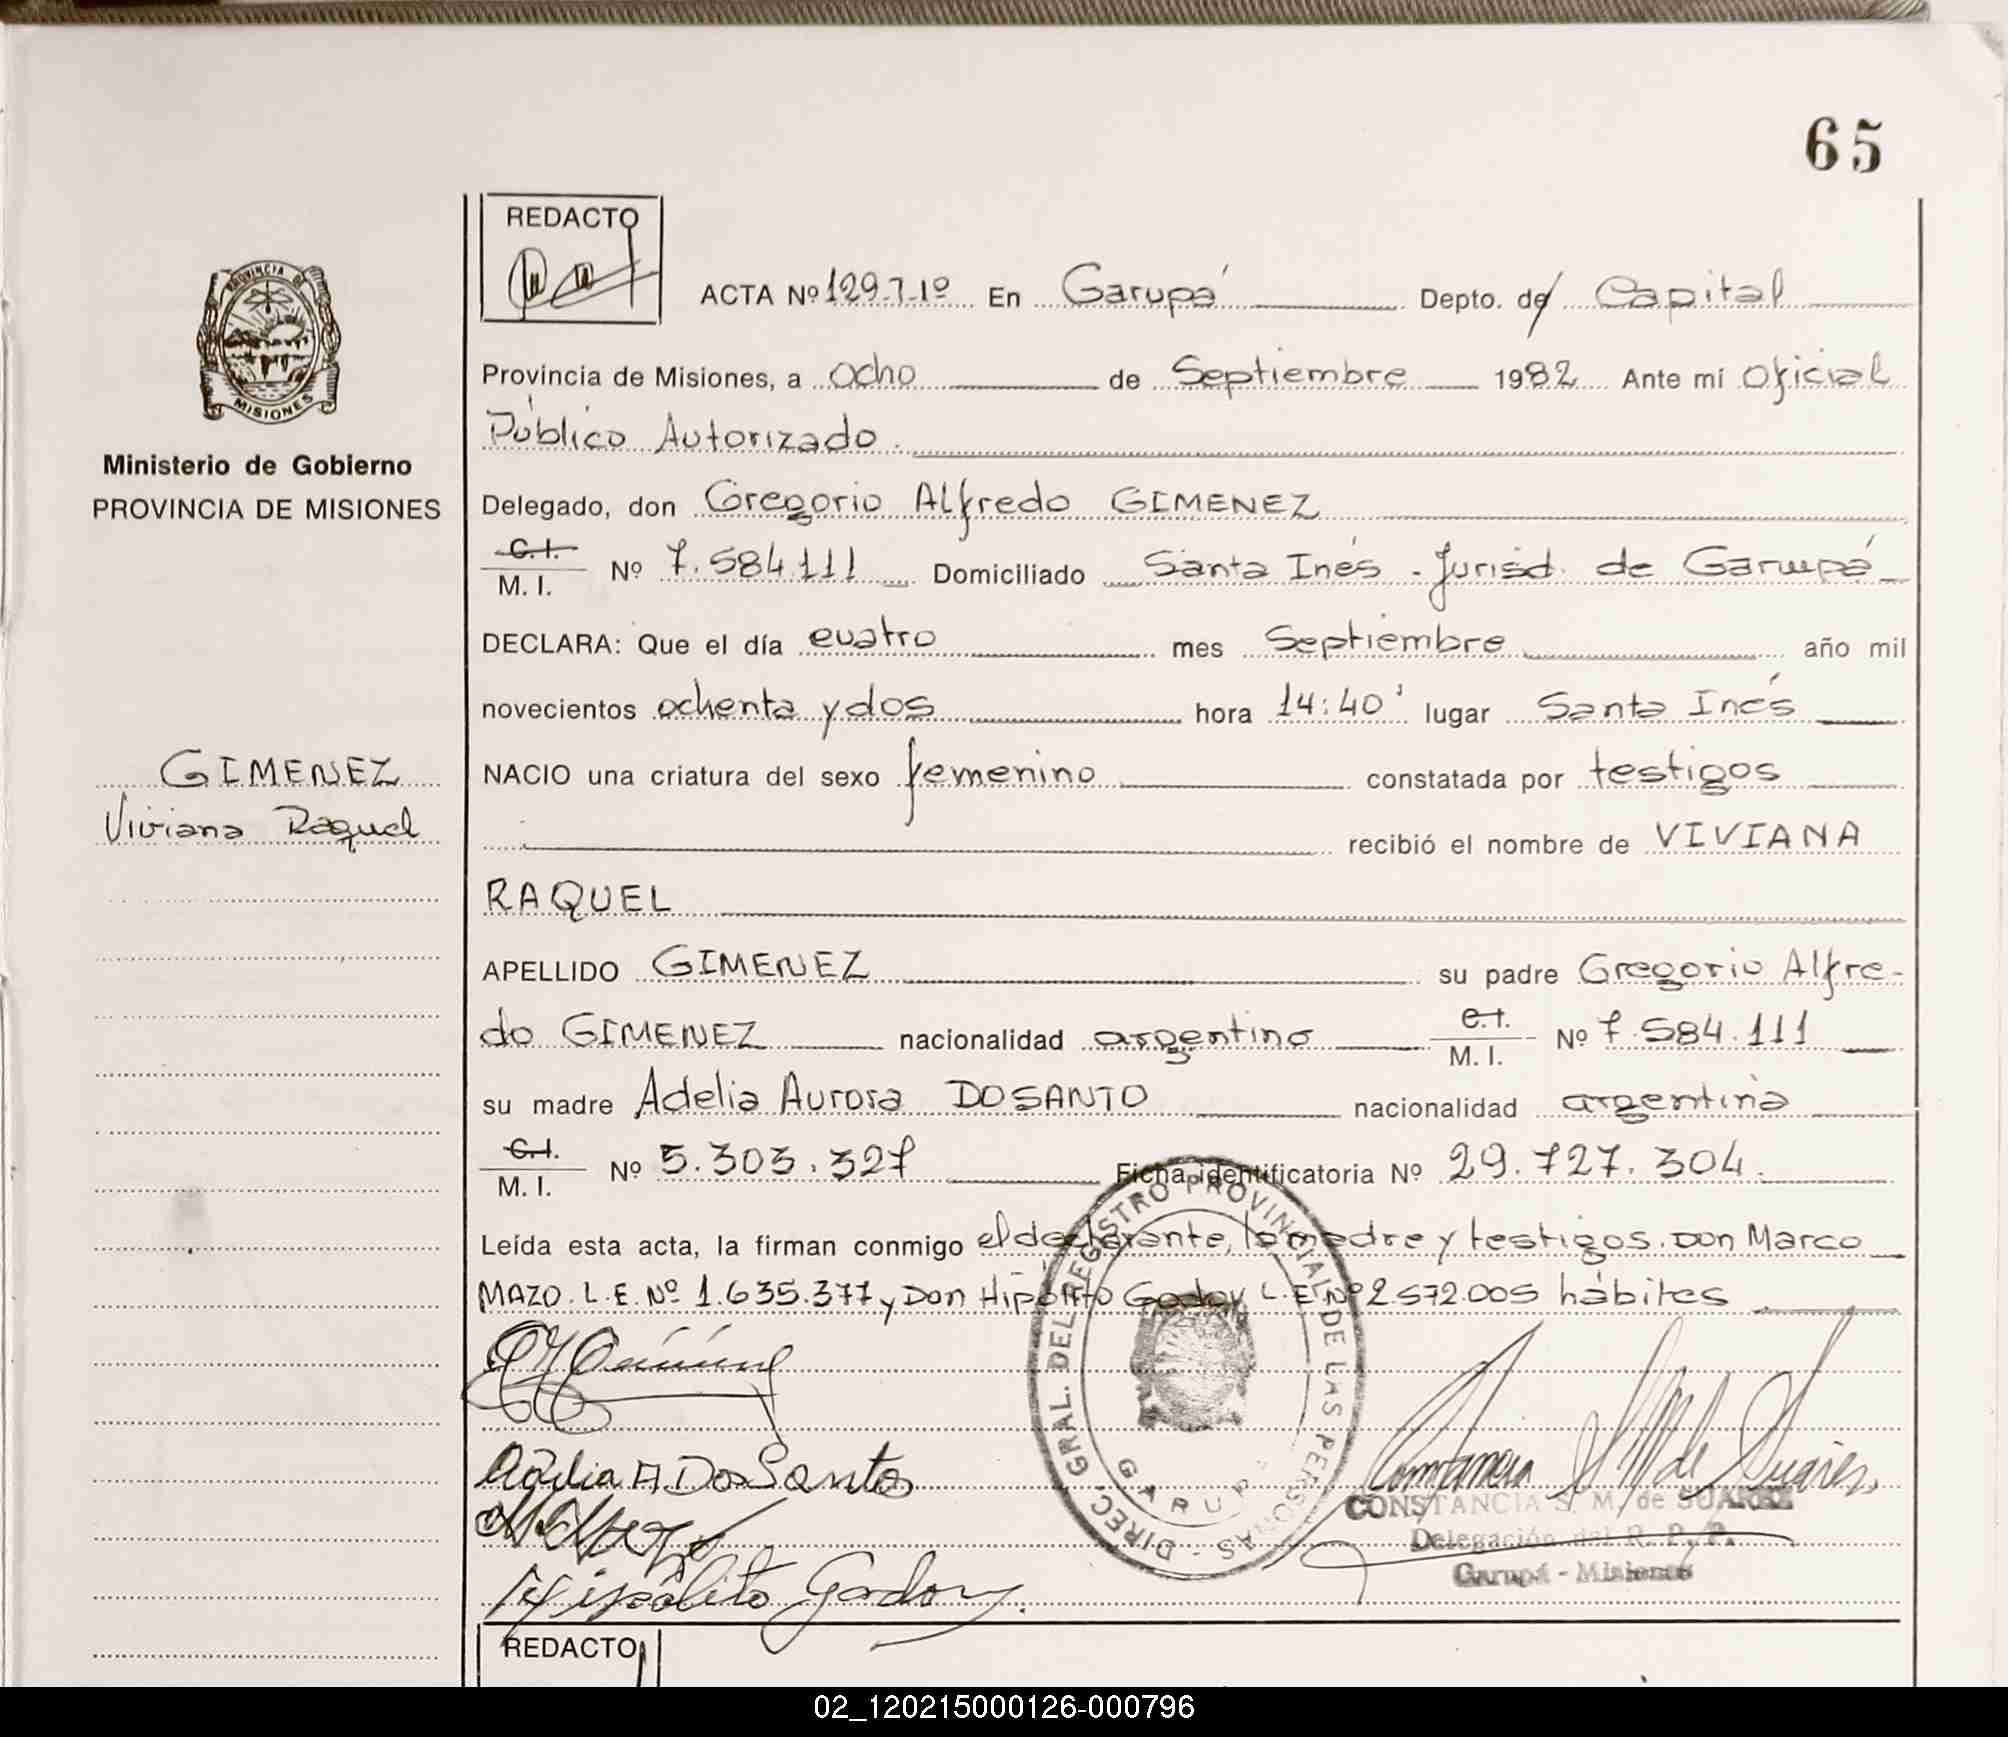 65
REDACTO
ACTA Nº 129-T-1º En Garupá Depto. de Capital
PROVINCIA DE
MISIONES
Provincia de Misiones, a ocho de Septiembre 1982 Ante mí Oficial
Público Autorizado.
Ministerio de Gobierno
PROVINCIA DE MISIONES
Delegado, don Gregorio Alfredo GIMENEZ
C.I.
M. I. Nº 7.584.111 Domiciliado Santa Inés - Jurisd. de Garupá
DECLARA: Que el día cuatro mes Septiembre año mil
novecientos ochenta y dos hora 14:40' lugar Santa Inés
GIMENEZ
Viviana Raquel
NACIO una criatura del sexo femenino constatada por testigos
recibió el nombre de VIVIANA
RAQUEL
APELLIDO GIMENEZ su padre Gregorio Alfre-
do GIMENEZ nacionalidad argentino C.I. M. I. Nº 7.584.111
su madre Adelia Aurora DOSANTO nacionalidad argentina
C.I.
M. I. Nº 5.303.327 Ficha identificatoria Nº 29.727.304.
Leída esta acta, la firman conmigo el declarante, la madre y testigos. Don Marco
MAZO. L.E. Nº 1.635.377 y Don Hipólito Godoy L.E. Nº 2.572.005 hábiles
DIREC. GRAL. DEL REGISTRO PROVINCIAL DE LAS PERSONAS -
GARUPA
Adelia A. Dos Santos
Hipólito Godoy.
Constancia S M de Suarez
CONSTANCIA S. M. de SUAREZ
Delegación del R. P. P.
Garupá - Misiones
REDACTO
02_120215000126-000796